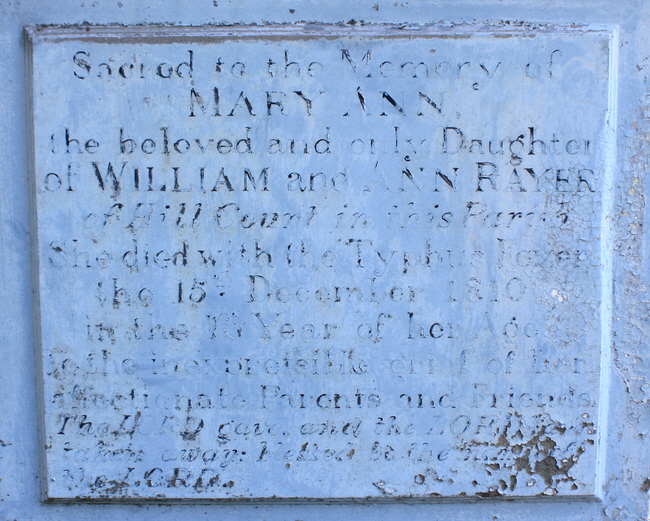 Sacred to the Memory of
MARY ANN,
the beloved and only Daughter
of WILLIAM and ANN RAYER
of Hill Court in this Parish
She died with the Typhus Fever
the 15th December 1810
in the 16 Year of her Age
to the inexpressible grief of her
affectionate Parents and Friends
The LORD gave, and the LORD
taken away: Blessed be the name of
the LORD.